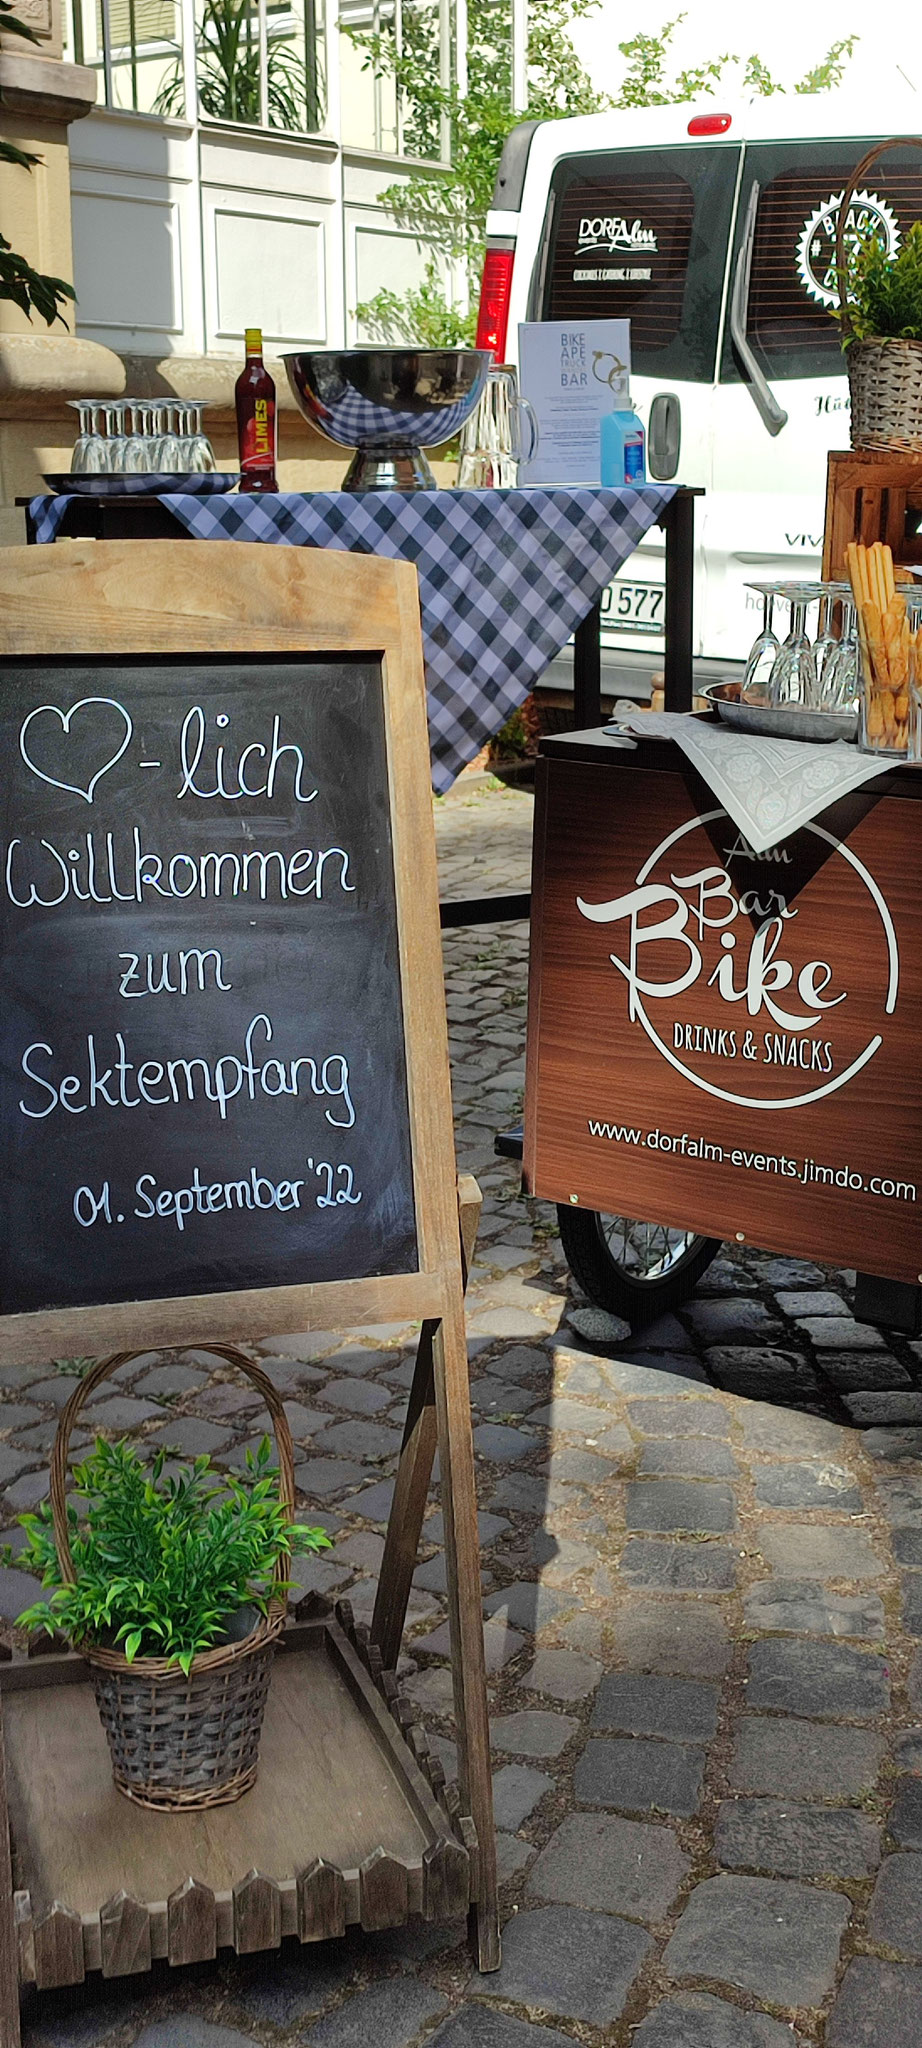 DORFAlm
events
BEACH
#
LIMES
BIKE
APE
TRUCK
BAR
577
♡-lich
Willkommen
zum
Sektempfang
01. September '22
Alm
Bar
Bike
DRINKS & SNACKS
www.dorfalm-events.jimdo.com